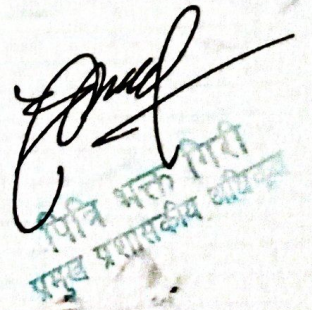 पित्रि भक्त गिरी
प्रमुख प्रशासकीय अधिकृत